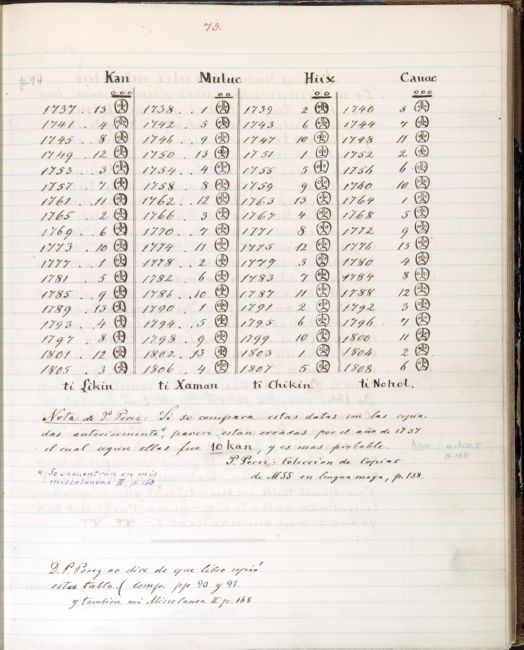 73.
p. 94
Kan Muluc Hiix Cauac
1737 .. 13 1738 .. 1 1739 2 1740 3
1741 .. 4 1742 .. 5 1743 6 1744 7
1745 .. 8 1746 .. 9 1747 10 1748 11
1749 .. 12 1750 .. 13 1751 1 1752 2
1753 .. 3 1754 .. 4 1755 5 1756 6
1757 .. 7 1758 .. 8 1759 9 1760 10
1761 .. 11 1762 .. 12 1763 13 1764 1
1765 .. 2 1766 .. 3 1767 4 1768 5
1769 .. 6 1770 .. 7 1771 8 1772 9
1773 .. 10 1774 .. 11 1775 12 1776 13
1777 .. 1 1778 .. 2 1779 3 1780 4
1781 .. 5 1782 .. 6 1783 7 1784 8
1785 .. 9 1786 .. 10 1787 11 1788 12
1789 .. 13 1790 .. 1 1791 2 1792 3
1793 .. 4 1794 .. 5 1795 6 1796 7
1797 .. 8 1798 .. 9 1799 10 1800 11
1801 .. 12 1802 .. 13 1803 1 1804 2
1805 .. 3 1806 .. 4 1807 5 1808 6
ti Likin ti Xaman ti Chikin ti Nohol.
Nota de P. Perez: Si se compara estas datas con las copia-
das anteriormente,* parece están erradas por el año de 1737
el cual segun ellas fue 10 kan, y es mas probable.
P. Perez: Coleccion de Copias
de MSS en lengua maya, p. 158.
* Se encuentran en mis
miscelaneas II p. 168
D. P. Perez no dice de que libro copió
estas tablas (comp. pp 90 y 91
y tambien mi Miscelanea II p. 168